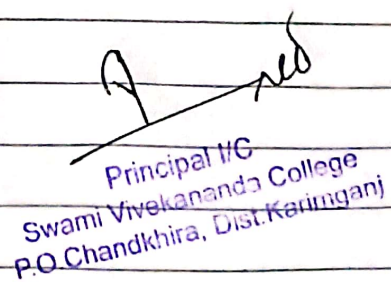 Principal I/C
Swami Vivekananda College
P.O.Chandkhira, Dist.Karimganj